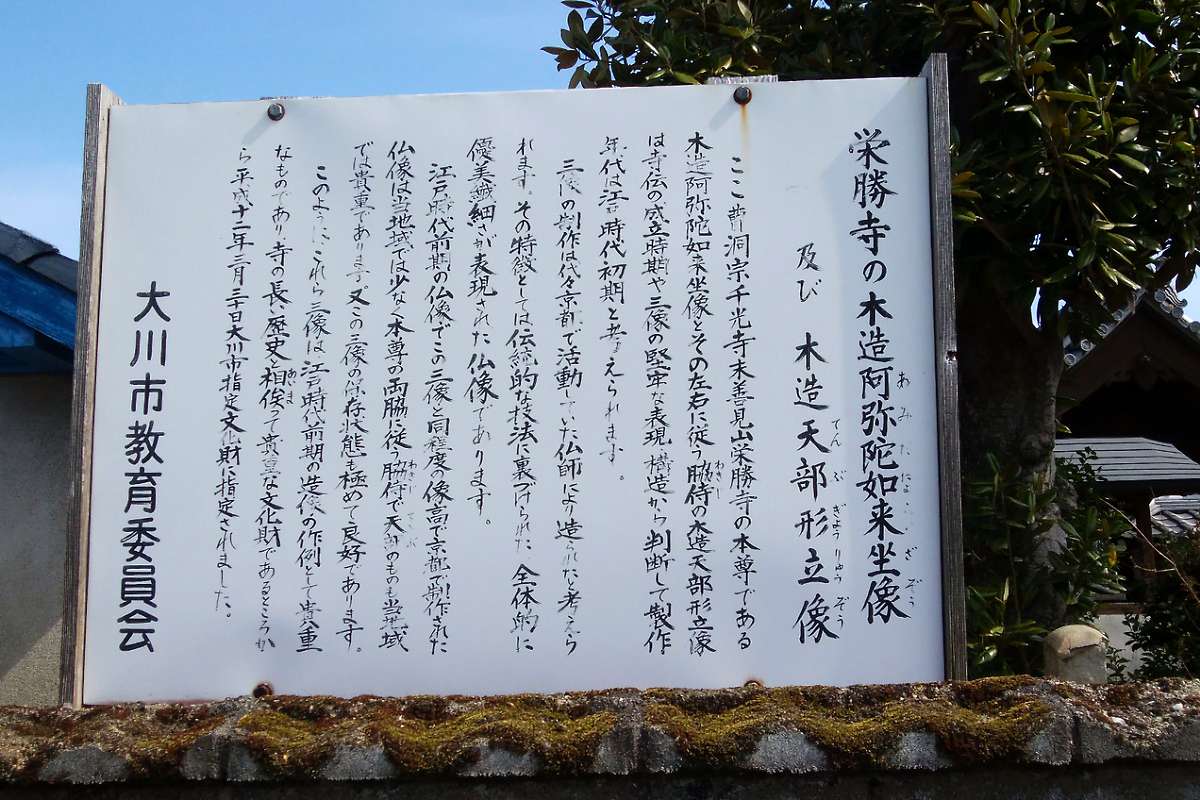 栄勝寺の木造阿弥陀如来坐像
及び 木造天部形立像
ここ曹洞宗千光寺末善見山栄勝寺の本尊である
木造阿弥陀如来坐像とその左右に従う脇侍の木造天部形立像
は寺伝の成立時期や三像の堅牢な表現、構造から判断して製作
年代は江戸時代初期と考えられます。
三像の制作は代々京都で活動していた仏師により造られた考えら
れます。その特徴としては伝統的な技法に裏付けられた、全体的に
優美繊細さが表現された仏像であります。
江戸時代前期の仏像でこの三像と同程度の像高で京都で制作された
仏像は当地域では少なく本尊の両脇に従う脇侍で天部のものも当地域
では貴重であります。又この三像の保存状態も極めて良好であります。
このようにこれら三像は江戸時代前期の造像の作例として貴重
なものであり寺の長い歴史と相俟って貴重な文化財であるところか
ら平成十二年三月三十日大川市指定文化財に指定されました。
大川市教育委員会